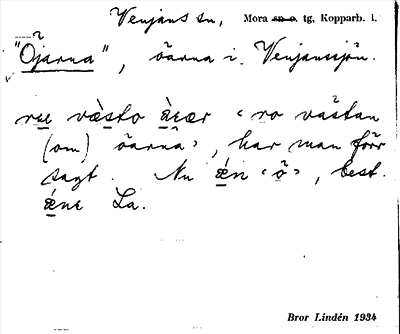 Venjans sn, Mora sn o. tg, Kopparb. l.
"Öjarna", öarna i Venjanssjön.
ru væ̀sto æ̀ær ‹ ro västan
(om) öarna›, har man förr
sagt. Nu ǽn ‹ö›, best.
ǽne La.
Bror Lindén 1934